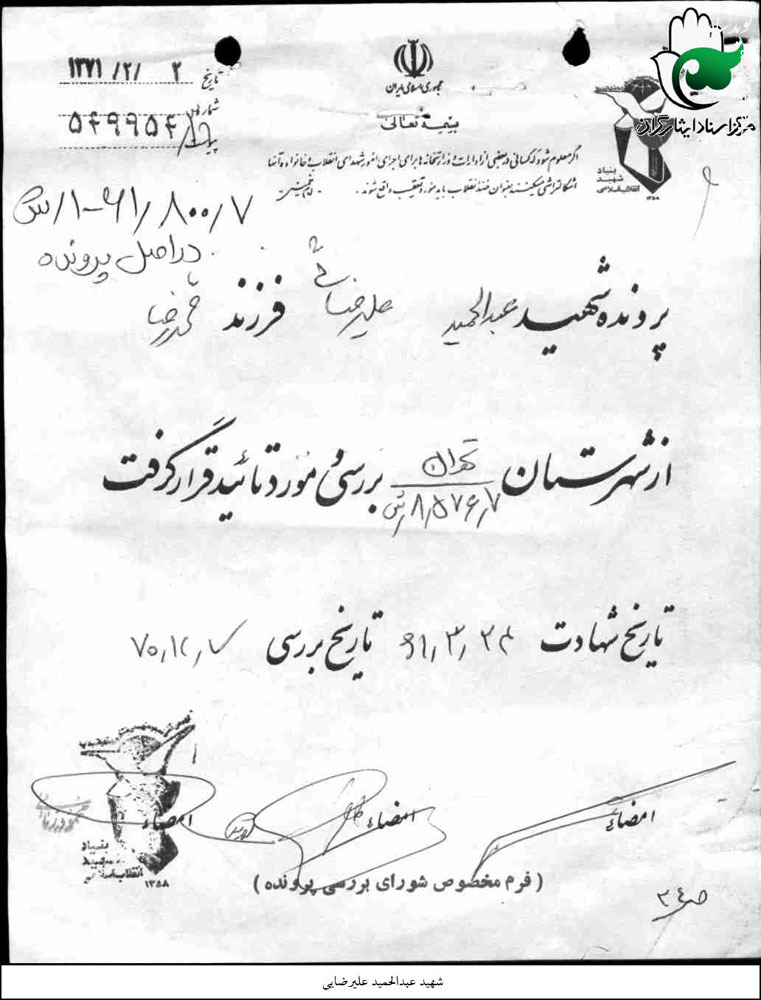 مرکز اسناد ایثارگران
جمهوری اسلامی ایران
تاریخ ۱۳۷۱ /۲/ ۲
بسمه تعالی
شماره
۵۴۹۹۵۴
اگر معلوم شود که کسانی در بعضی از ادارات و وزارتخانه‌ها برای اجرای امور شهدای انقلاب و خانواده آنها
اشکالتراشی میکنند بعنوان ضد انقلاب باید مورد تعقیب واقع شوند . امام خمینی
بنیاد
شهید
انقلاب اسلامی
۱۳۵۸
در اصل پرونده
پرونده شهید عبدالحمید علیرضائی فرزند محمدرضا
از شهرستان تهران بررسی و مورد تائید قرار گرفت
۸٫۵۷۶٫۷
تاریخ شهادت ۶۱٫۳٫۲۴ تاریخ بررسی ۷۰٫۱۲٫۷
امضاء امضاء امضاء
بنیاد
شهید
انقلاب اسلامی
۱۳۵۸
( فرم مخصوص شورای بررسی پرونده )
شهید عبدالحمید علیرضایی